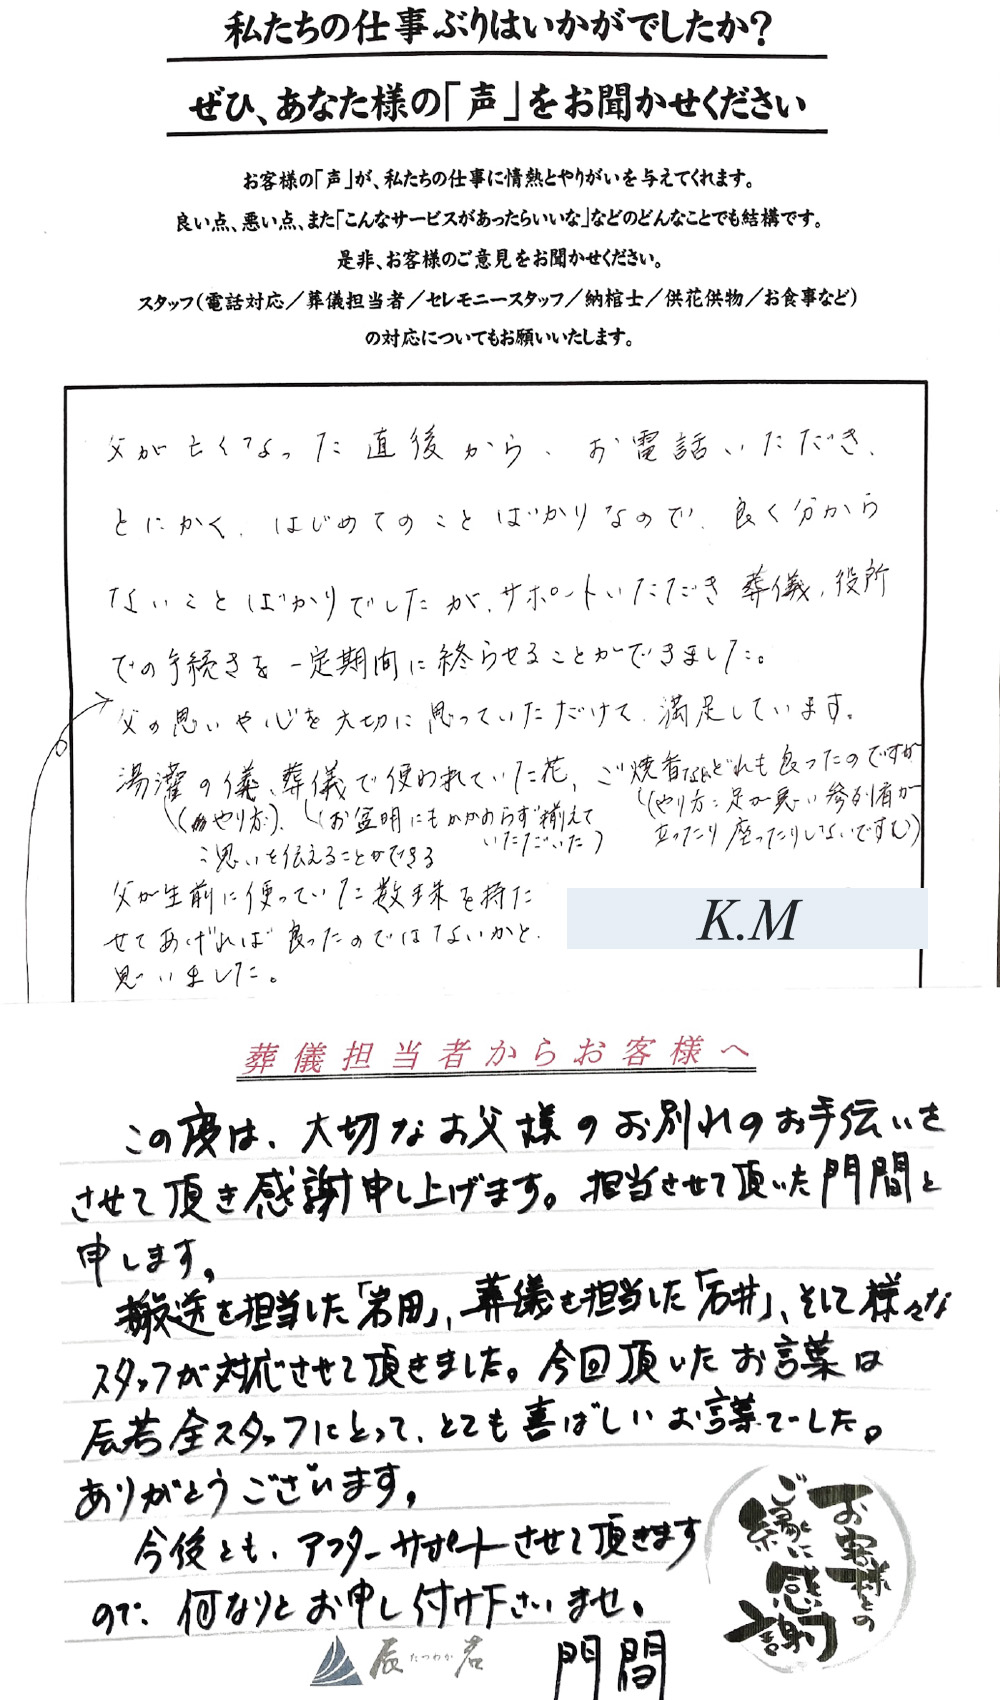 私たちの仕事ぶりはいかがでしたか?
ぜひ、あなた様の「声」をお聞かせください
お客様の「声」が、私たちの仕事に情熱とやりがいを与えてくれます。
良い点、悪い点、また「こんなサービスがあったらいいな」などのどんなことでも結構です。
是非、お客様のご意見をお聞かせください。
スタッフ(電話対応/葬儀担当者/セレモニースタッフ/納棺士/供花供物/お食事など)
の対応についてもお願いいたします。
父が亡くなった直後から、お電話いただき、
とにかく、はじめてのことばかりなので、良く分から
ないことばかりでしたが、サポートいただき葬儀、役所
での手続きを一定期間に終らせることができました。
父の思いや心を大切に思っていただけて、満足しています。
湯灌の儀、葬儀で使われていた花、ご焼香などどれも良ったのですが
(やり方)、(お盆明にもかかわらず揃えて
いただいた)
(やり方:足が悪い参列者が
立ったり座ったりしないですむ)
思いを伝えることができる
父が生前に使っていた数珠を持た
せてあげれば良ったのではないかと、
思いました。
K.M
葬儀担当者からお客様へ
この度は、大切なお父様のお別れのお手伝いを
させて頂き感謝申し上げます。担当させて頂いた門間と
申します。
搬送を担当した「岩田」、葬儀を担当した「石井」、そして様々な
スタッフが対応させて頂きました。今回頂いたお言葉は
辰若全スタッフにとって、とても喜ばしいお言葉でした。
ありがとうございます。
今後とも、アフターサポートさせて頂きます
ので、何なりとお申し付け下さいませ。
お客様との
ご縁に
感謝
辰若
たつわか
門間